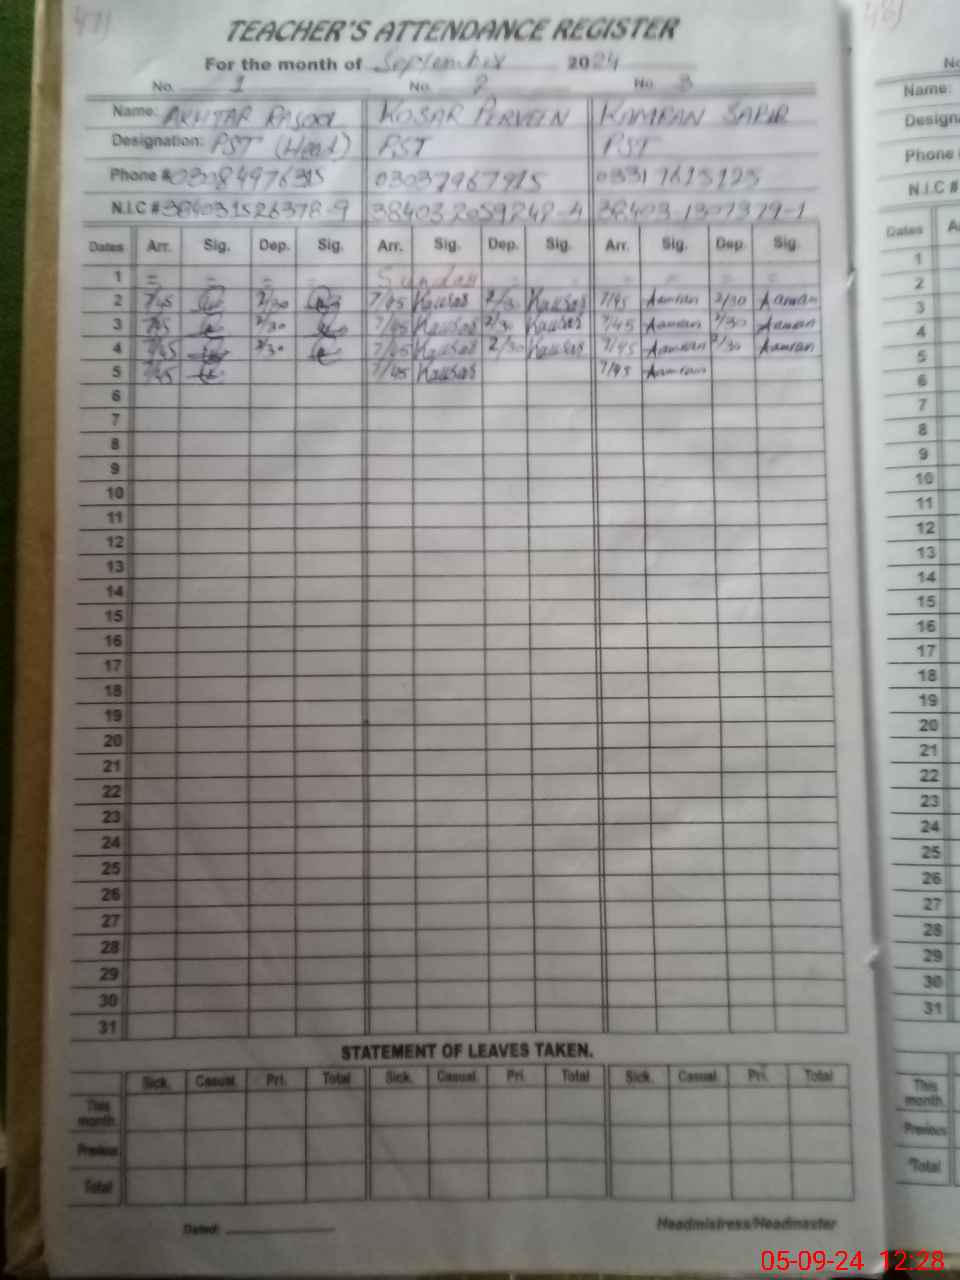 47)
TEACHER'S ATTENDANCE REGISTER
For the month of September 2024
No. 1 No. 2 No. 3
Name: AKHTAR RASOOL KOSAR PERVEEN KAMRAN SABIR
Designation: PST (Head) PST PST
Phone # 03084976315 03037967915 03317613123
N.I.C # 384031526378-9 38403 2059248-4 38403-1307379-1
Dates Arr. Sig. Dep. Sig. Arr. Sig. Dep. Sig. Arr. Sig. Dep. Sig.
1 Sunday
2 7/45 2/30 7/45 Kausar 2/30 Kausar 7/45 Kamran 2/30 Kamran
3 7/45 2/30 7/45 Kausar 2/30 Kausar 7/45 Kamran 2/30 Kamran
4 7/45 2/30 7/45 Kausar 2/30 Kausar 7/45 Kamran 2/30 Kamran
5 7/45 7/45 Kausar 7/45 Kamran
6
7
8
9
10
11
12
13
14
15
16
17
18
19
20
21
22
23
24
25
26
27
28
29
30
31
STATEMENT OF LEAVES TAKEN.
Sick. Casual Pri. Total Sick. Casual Pri. Total Sick. Casual Pri. Total
This month.
Previous
Total
Dated:
Headmistress/Headmaster
48)
Name:
Phone
N.I.C #
Dates
1
2
3
4
5
6
7
8
9
10
11
12
13
14
15
16
17
18
19
20
21
22
23
24
25
26
27
28
29
30
31
This month.
Previous
Total
05-09-24 12:28